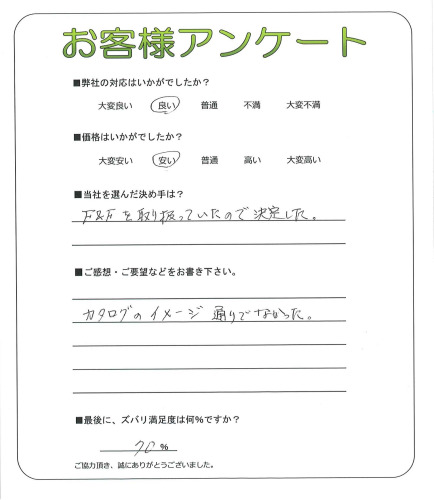 お客様アンケート
■弊社の対応はいかがでしたか？
大変良い 良い 普通 不満 大変不満
■価格はいかがでしたか？
大変安い 安い 普通 高い 大変高い
■当社を選んだ決め手は？
F&Fを取り扱っていたので決定した。
■ご感想・ご要望などをお書き下さい。
カタログのイメージ通りでなかった。
■最後に、ズバリ満足度は何％ですか？
70 %
ご協力頂き、誠にありがとうございました。